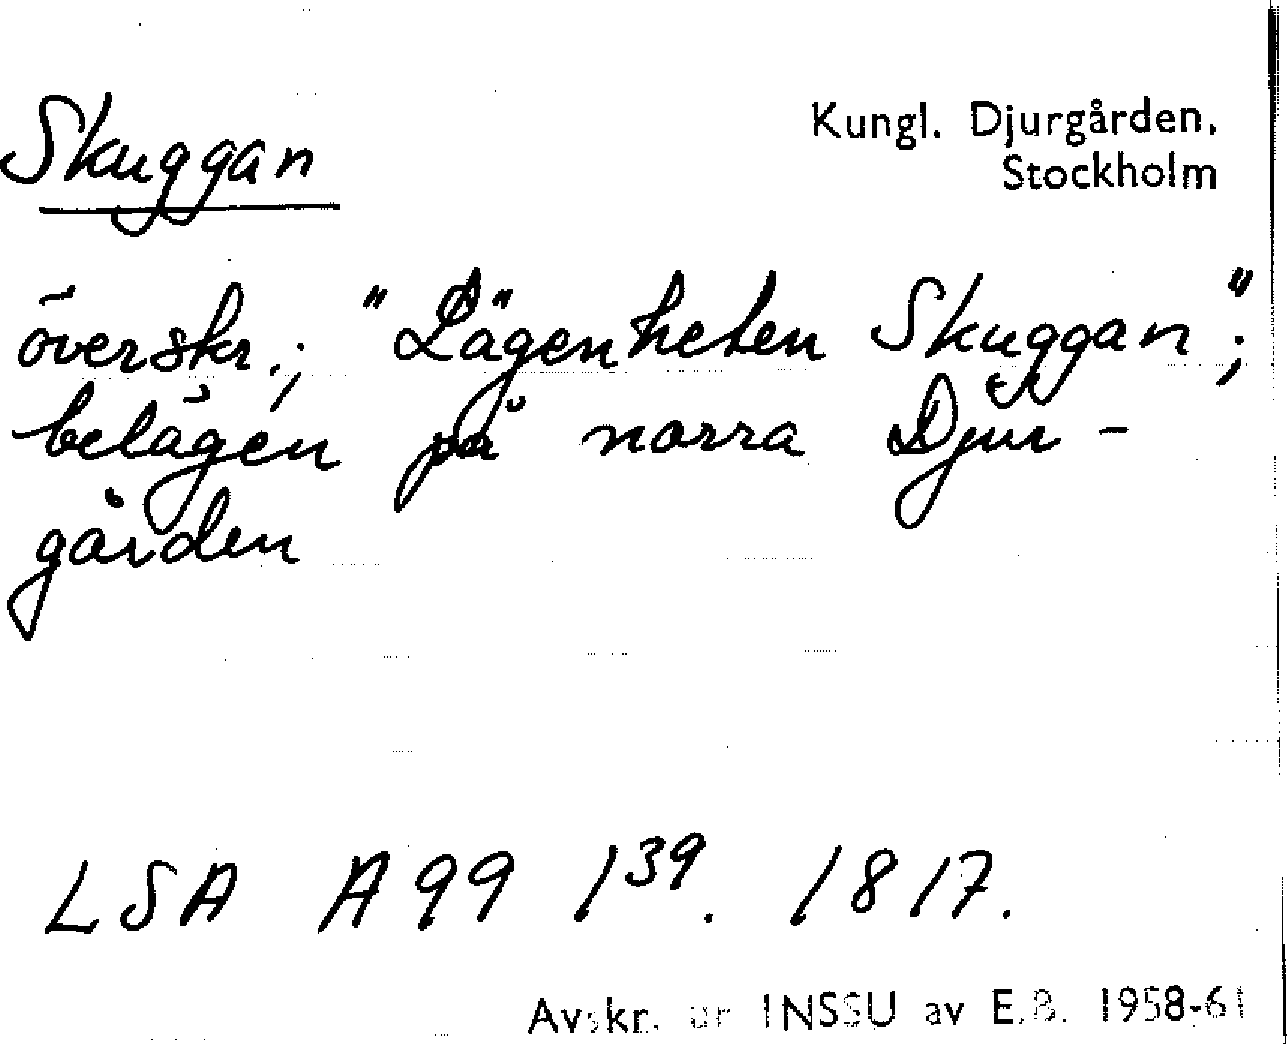 Skuggan
Kungl. Djurgården,
Stockholm
överskr.; "Lägenheten Skuggan";
belägen på norra Djur-
gården
LSA A99 1³⁹. 1817.
Avskr. ur INSSU av E.B. 1958-61